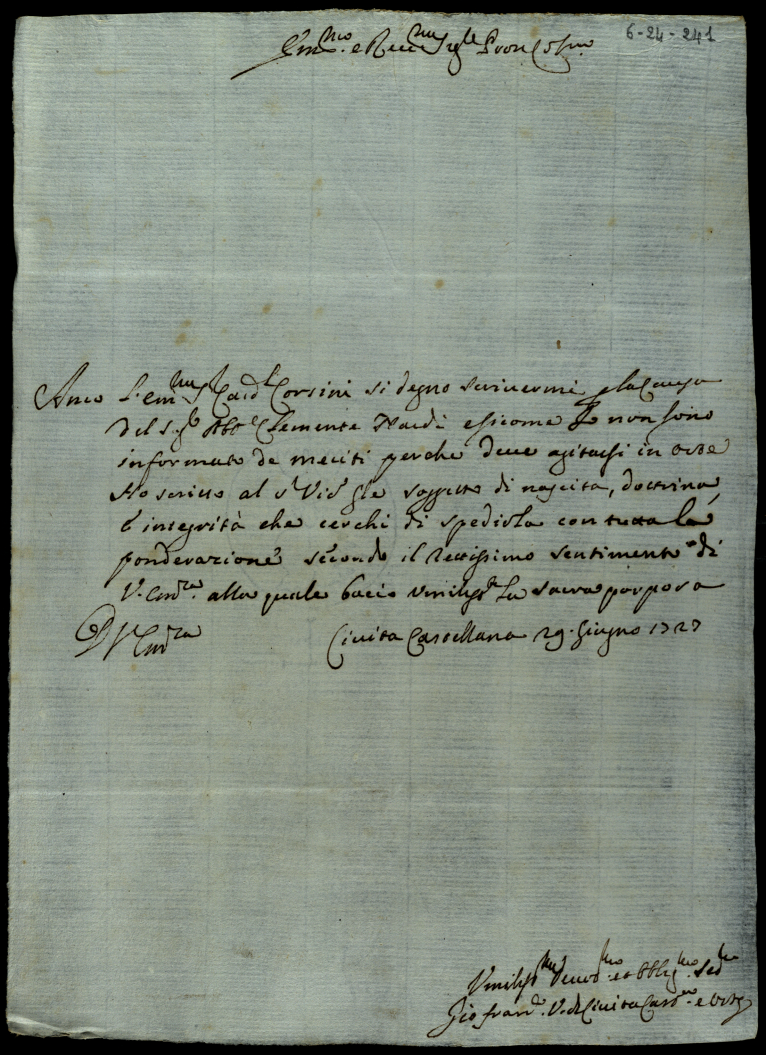 6-24-241
Em.mo e Rev.mo Sig.re Pron Col.mo
Anco l'Em.mo S.r Card.l Corsini si degno scrivermi p la Causa
del S.r Abb.e Clemente Nardi e sicome Io non sono
informato de meriti perche deve agitarsi in Orte
Ho scritto al S.r Vic.o Gle soggetto di nascita, dottrina
è integrità che cerchi di spedirla con tutta la
ponderazione secondo il rettissimo sentimento di
V. Em.za alla quale bacio umiliss.te la sacra porpora
D V Em.za Civita Castellana 29. Giugno 1727
Umiliss.mo Devot.mo et Obblig.mo Ser.re
Gio. Fran.co V. di Civita Cast.na e Orte